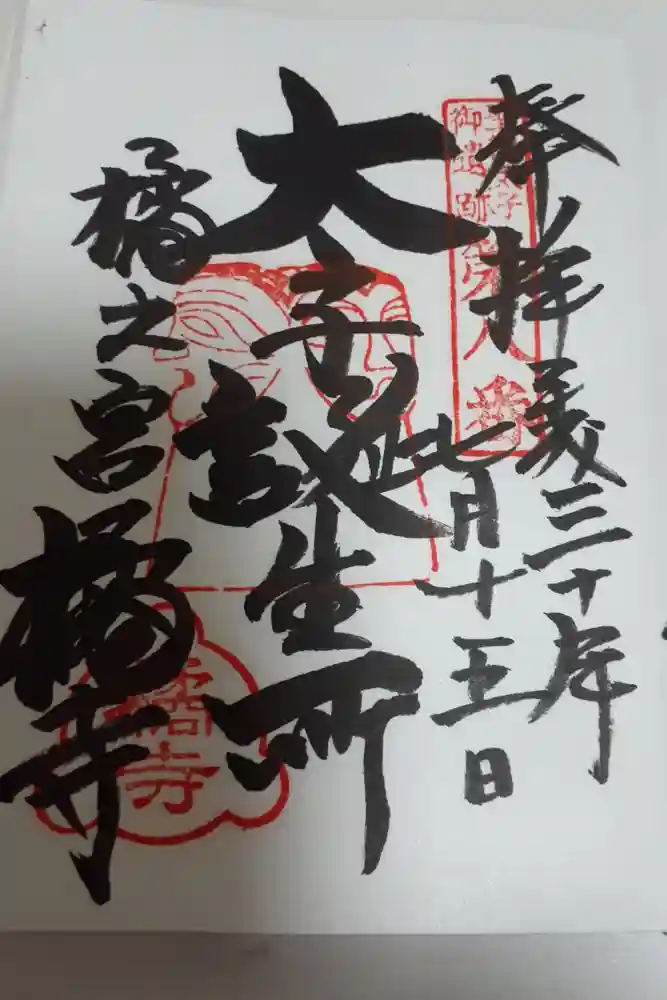 奉拝
平成三十年
七月十五日
聖徳太子
御遺跡第八番
太子誕生所
橘之宮 橘寺
橘寺